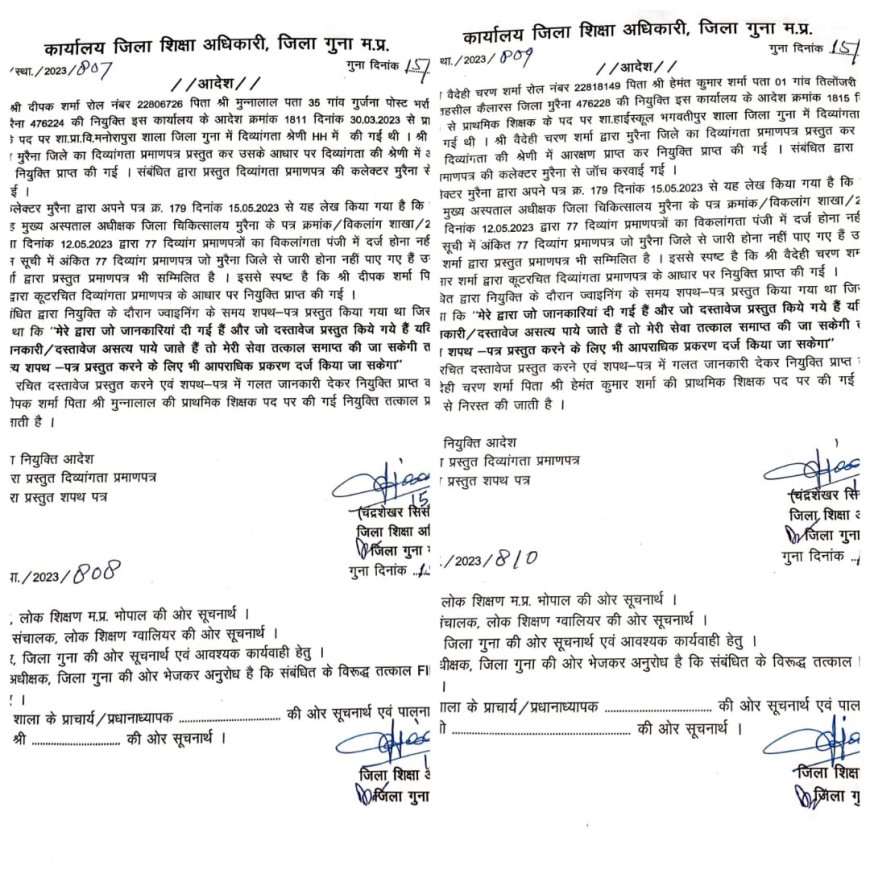 कार्यालय जिला शिक्षा अधिकारी, जिला गुना म.प्र.
/स्था./2023/807 गुना दिनांक 15/
//आदेश//
श्री दीपक शर्मा रोल नंबर 22806726 पिता श्री मुन्नालाल पता 35 गांव गुर्जना पोस्ट भर्रा
476224 की नियुक्ति इस कार्यालय के आदेश क्रमांक 1811 दिनांक 30.03.2023 से
पद पर शा.प्रा.वि.मनोरापुरा शाला जिला गुना में दिव्यांगता श्रेणी HH में की गई थी । श्री
मुरैना जिले का दिव्यांगता प्रमाणपत्र प्रस्तुत कर उसके आधार पर दिव्यांगता की श्रेणी में
नियुक्ति प्राप्त की गई । संबंधित द्वारा प्रस्तुत दिव्यांगता प्रमाणपत्र की कलेक्टर मुरैना से
ई ।
लेक्टर मुरैना द्वारा अपने पत्र क्र. 179 दिनांक 15.05.2023 से यह लेख किया गया है कि
मुख्य अस्पताल अधीक्षक जिला चिकित्सालय मुरैना के पत्र क्रमांक/विकलांग शाखा/2
दिनांक 12.05.2023 द्वारा 77 दिव्यांग प्रमाणपत्रों का विकलांगता पंजी में दर्ज होना नही
सूची में अंकित 77 दिव्यांग प्रमाणपत्र जो मुरैना जिले से जारी होना नहीं पाए गए हैं उ
द्वारा प्रस्तुत प्रमाणपत्र भी सम्मिलित है । इससे स्पष्ट है कि श्री दीपक शर्मा पि
द्वारा कूटरचित दिव्यांगता प्रमाणपत्र के आधार पर नियुक्ति प्राप्त की गई ।
बंधित द्वारा नियुक्ति के दौरान ज्वाइनिंग के समय शपथ–पत्र प्रस्तुत किया गया था जिस
था कि "मेरे द्वारा जो जानकारियां दी गई हैं और जो दस्तावेज प्रस्तुत किये गये हैं यदि
नकारी/दस्तावेज असत्य पाये जाते हैं तो मेरी सेवा तत्काल समाप्त की जा सकेगी त
य शपथ –पत्र प्रस्तुत करने के लिए भी आपराधिक प्रकरण दर्ज किया जा सकेगा"
रचित दस्तावेज प्रस्तुत करने एवं शपथ–पत्र में गलत जानकारी देकर नियुक्ति प्राप्त क
ीपक शर्मा पिता श्री मुन्नालाल की प्राथमिक शिक्षक पद पर की गई नियुक्ति तत्काल प्र
जाती है ।
नियुक्ति आदेश
रा प्रस्तुत दिव्यांगता प्रमाणपत्र
रा प्रस्तुत शपथ पत्र
15
(चंद्रशेखर सिसं
जिला शिक्षा अ
जिला गुना
/2023/808 गुना दिनांक ..
, लोक शिक्षण म.प्र. भोपाल की ओर सूचनार्थ ।
संचालक, लोक शिक्षण ग्वालियर की ओर सूचनार्थ ।
, जिला गुना की ओर सूचनार्थ एवं आवश्यक कार्यवाही हेतु ।
अधीक्षक, जिला गुना की ओर भेजकर अनुरोध है कि संबंधित के विरूद्ध तत्काल FI
।
शाला के प्राचार्य/प्रधानाध्यापक .......................... की ओर सूचनार्थ एवं पालना
श्री ...................... की ओर सूचनार्थ ।
जिला शिक्षा अ
जिला गुना
कार्यालय जिला शिक्षा अधिकारी, जिला गुना म.प्र.
था./2023/809 गुना दिनांक 15/
//आदेश//
वैदेही चरण शर्मा रोल नंबर 22818149 पिता श्री हेमंत कुमार शर्मा पता 01 गांव तिलोंजरी
हसील कैलारस जिला मुरैना 476228 की नियुक्ति इस कार्यालय के आदेश क्रमांक 1815 दि
से प्राथमिक शिक्षक के पद पर शा.हाईस्कूल भगवतीपुर शाला जिला गुना में दिव्यांगता
गई थी । श्री वैदेही चरण शर्मा द्वारा मुरैना जिले का दिव्यांगता प्रमाणपत्र प्रस्तुत कर
दिव्यांगता की श्रेणी में आरक्षण प्राप्त कर नियुक्ति प्राप्त की गई । संबंधित द्वारा
माणपत्र की कलेक्टर मुरैना से जॉच करवाई गई ।
ेक्टर मुरैना द्वारा अपने पत्र क्र. 179 दिनांक 15.05.2023 से यह लेख किया गया है कि
मुख्य अस्पताल अधीक्षक जिला चिकित्सालय मुरैना के पत्र क्रमांक/विकलांग शाखा/2
दिनांक 12.05.2023 द्वारा 77 दिव्यांग प्रमाणपत्रों का विकलांगता पंजी में दर्ज होना नही
सूची में अंकित 77 दिव्यांग प्रमाणपत्र जो मुरैना जिले से जारी होना नहीं पाए गए हैं उ
शर्मा द्वारा प्रस्तुत प्रमाणपत्र भी सम्मिलित है । इससे स्पष्ट है कि श्री वैदेही चरण शर्म
ार शर्मा द्वारा कूटरचित दिव्यांगता प्रमाणपत्र के आधार पर नियुक्ति प्राप्त की गई ।
धित द्वारा नियुक्ति के दौरान ज्वाइनिंग के समय शपथ–पत्र प्रस्तुत किया गया था जिस
था कि "मेरे द्वारा जो जानकारियां दी गई हैं और जो दस्तावेज प्रस्तुत किये गये हैं यदि
नकारी/दस्तावेज असत्य पाये जाते हैं तो मेरी सेवा तत्काल समाप्त की जा सकेगी त
शपथ –पत्र प्रस्तुत करने के लिए भी आपराधिक प्रकरण दर्ज किया जा सकेगा"
रचित दस्तावेज प्रस्तुत करने एवं शपथ–पत्र में गलत जानकारी देकर नियुक्ति प्राप्त
देही चरण शर्मा पिता श्री हेमंत कुमार शर्मा की प्राथमिक शिक्षक पद पर की गई
से निरस्त की जाती है ।
नियुक्ति आदेश
प्रस्तुत दिव्यांगता प्रमाणपत्र
प्रस्तुत शपथ पत्र
(चंद्रशेखर सिस
जिला शिक्षा अ
जिला गुना
/2023/810 गुना दिनांक ..
लोक शिक्षण म.प्र. भोपाल की ओर सूचनार्थ ।
संचालक, लोक शिक्षण ग्वालियर की ओर सूचनार्थ ।
जिला गुना की ओर सूचनार्थ एवं आवश्यक कार्यवाही हेतु ।
धीक्षक, जिला गुना की ओर भेजकर अनुरोध है कि संबंधित के विरूद्ध तत्काल
।
ाला के प्राचार्य/प्रधानाध्यापक ............................ की ओर सूचनार्थ एवं पाल
............................................ की ओर सूचनार्थ ।
जिला शिक्षा
जिला गु